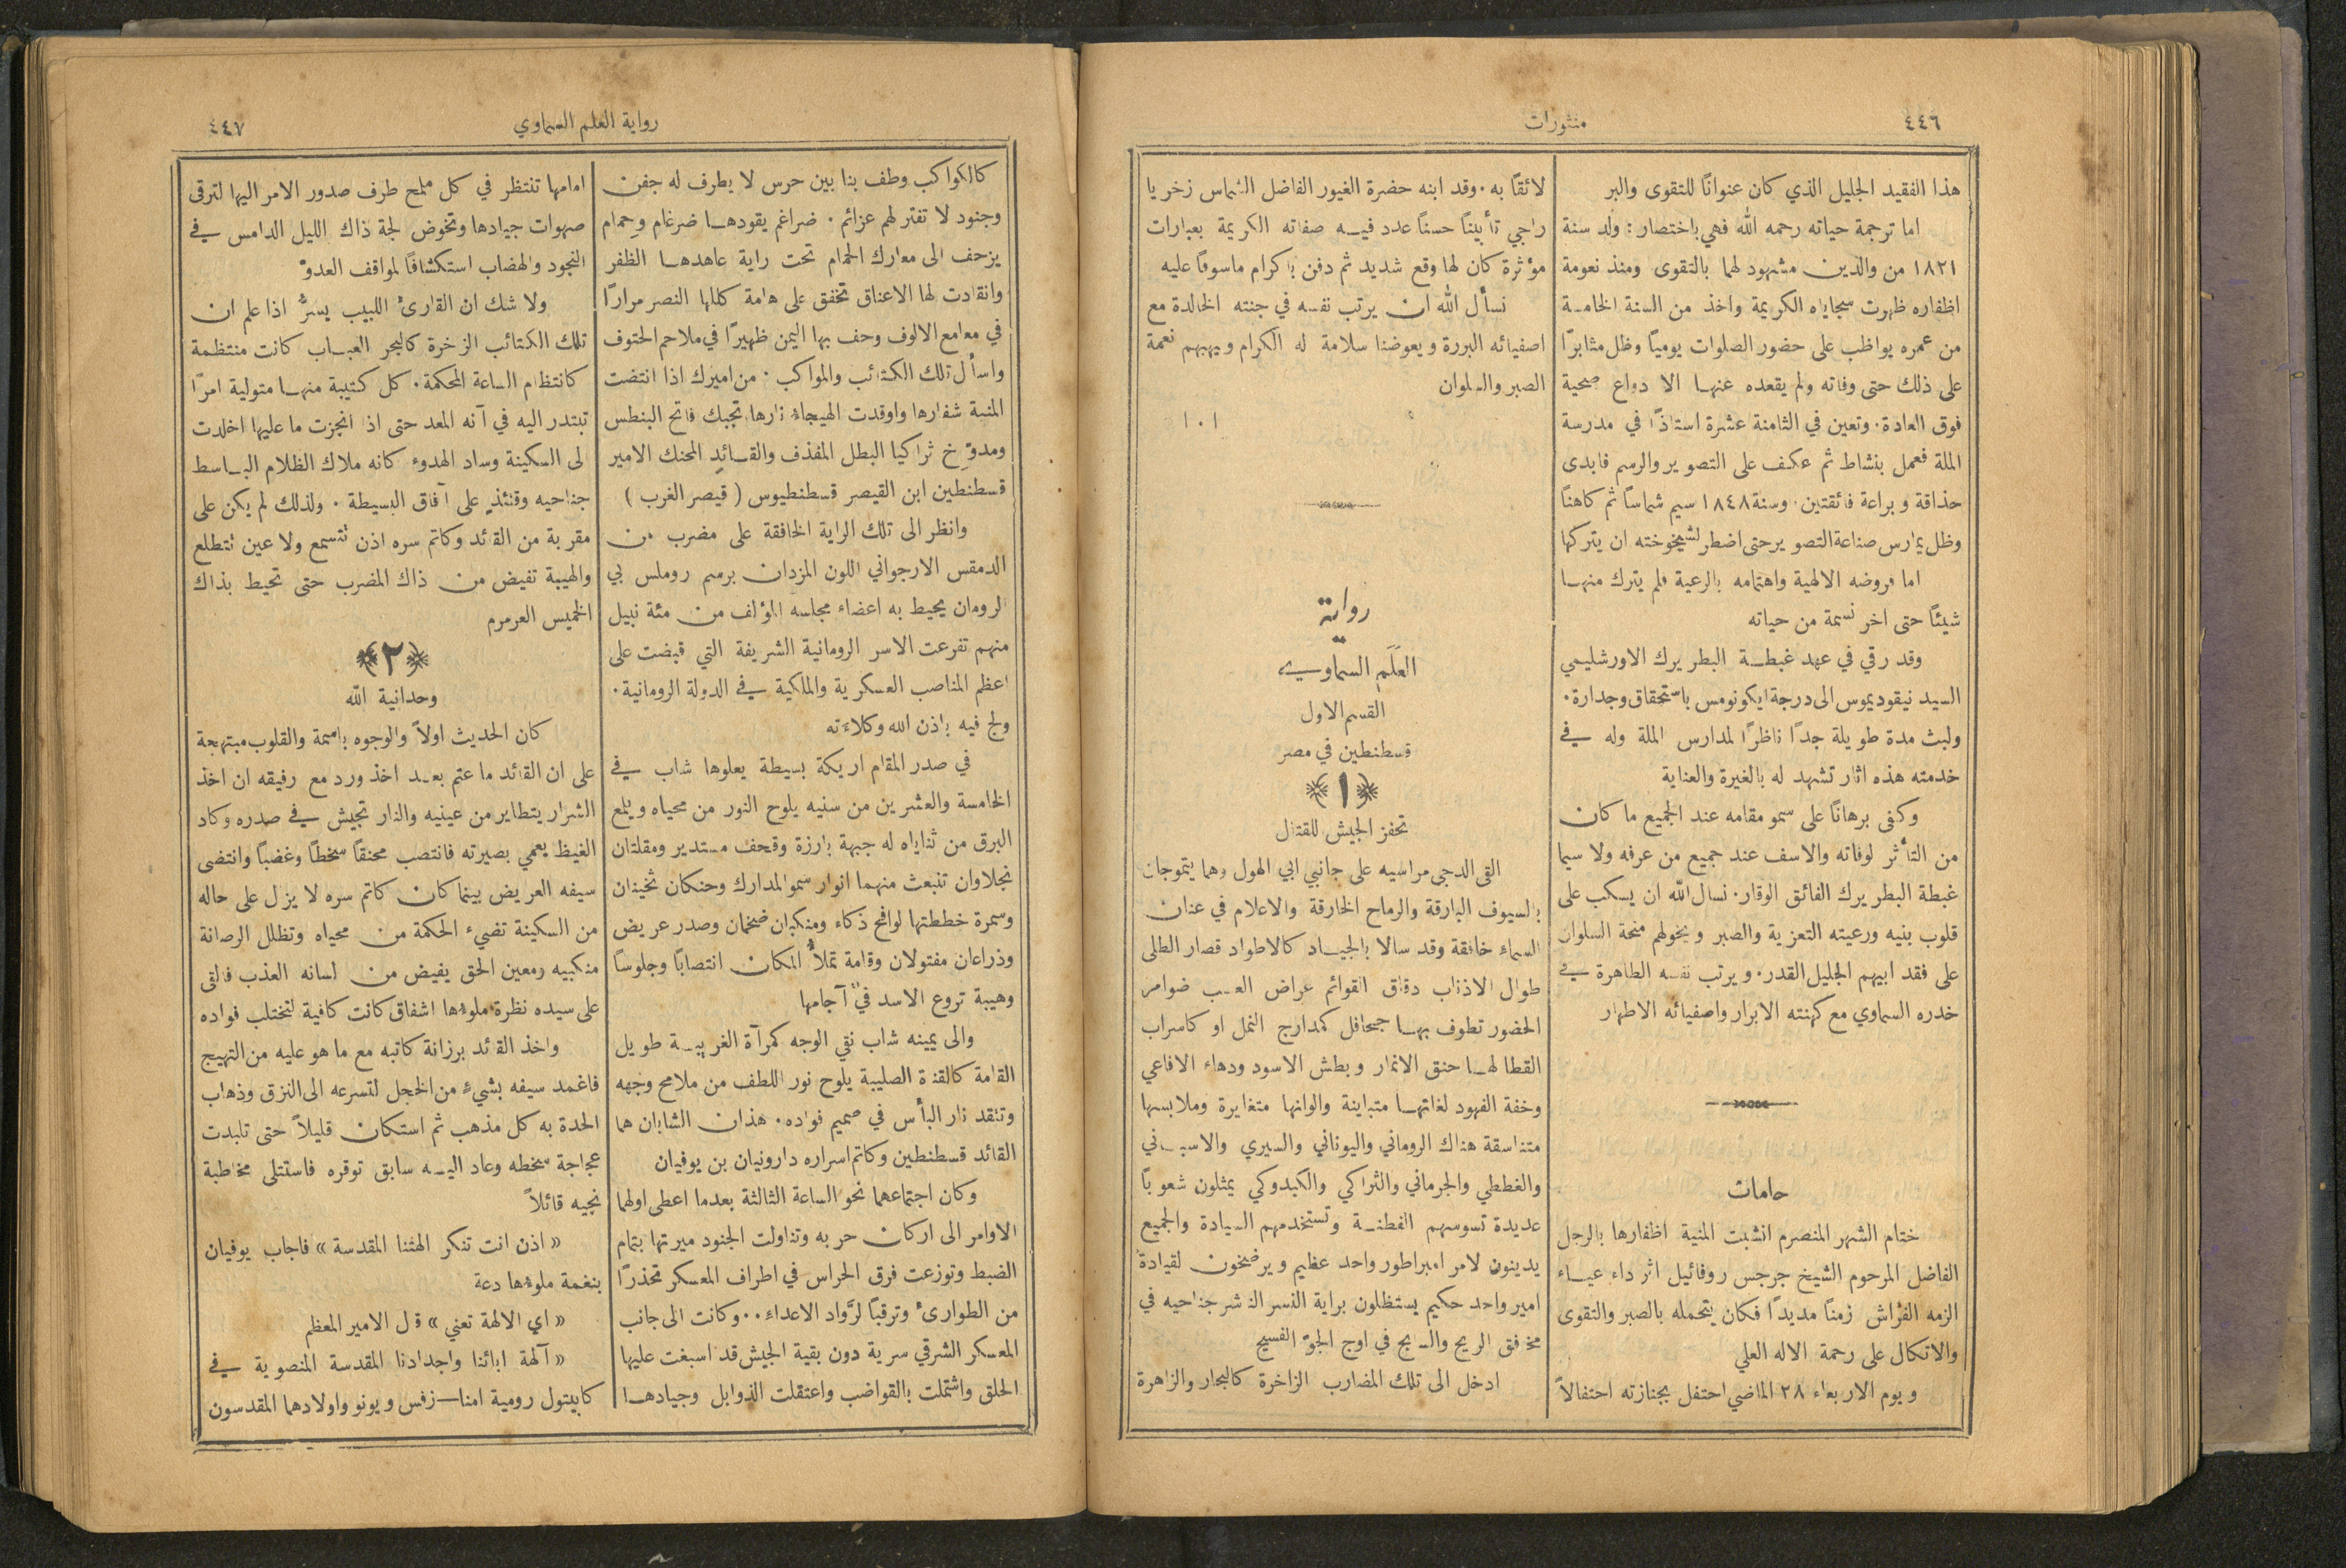 ٤٤٦
منثورات
هذا الفقيد الجليل الذي كان عنوانًا للتقوى والبر
اما ترجمة حياته رحمه الله فهي باختصار : ولد سنة
١٨٢١ من والدين مشهود لهما بالتقوى ومنذ نعومة
اظفاره ظهرت سجاياه الكريمة واخذ من السنة الخامسة
من عمره يواظب على حضور الصلوات يوميًا وظل مثابرًا
على ذلك حتى وفاته ولم يقعده عنها الا دواع صحية
فوق العادة . وتعين في الثامنة عشرة استاذًا في مدرسة
الملة فعمل بنشاط ثم عكف على التصوير والرسم فابدى
حذاقة وبراعة فائقتين . وسنة ١٨٤٨ سيم شماسًا ثم كاهنًا
وظل يمارس صناعة التصوير حتى اضطر لشيخوخته ان يتركها
اما فروضه الالهية واهتمامه بالرعية فلم يترك منها
شيئًا حتى اخر نسمة من حياته
وقد رقي في عهد غبطة البطريرك الاورشليمي
السيد نيقوديموس الى درجة ايكونومس باستحقاق وجدارة .
ولبث مدة طويلة جدًا ناظرًا لمدارس الملة وله في
خدمته هذه اثار تشهد له بالغيرة والعناية
وكفى برهانًا على سمو مقامه عند الجميع ما كان
من التأثر لوفاته والاسف عند جميع من عرفه ولا سيما
غبطة البطريرك الفائق الوقار . نسال الله ان يسكب على
قلوب بنيه ورعيته التعزية والصبر ويخولهم منحة السلوان
على فقد ابيهم الجليل القدر . ويرتب نفسه الطاهرة في
خدره السماوي مع كهنته الابرار واصفيائه الاطهار
حامات
ختام الشهر المنصرم انشبت المنية اظفارها بالرجل
الفاضل المرحوم الشيخ جرجس روفائيل اثر داء عياء
الزمه الفراش زمنًا مديدًا فكان يتحمله بالصبر والتقوى
والاتكال على رحمة الاله العلي
ويوم الاربعاء ٢٨ الماضي احتفل بجنازته احتفالاً
لائقًا به . وقد ابنه حضرة الغيور الفاضل الشماس زخريا
راجي تأبينًا حسنًا عدد فيه صفاته الكريمة بعبارات
مؤثرة كان لها وقع شديد ثم دفن باكرام ماسوفًا عليه
نسأل الله ان يرتب نفسه في جنته الخالدة مع
اصفيائه البررة ويعوضنا سلامة له الكرام ويهبهم نعمة
الصبر والسلوان
ا . ا
رواية
العَلَم السماوي
القسم الاول
قسطنطين في مصر
﴿١﴾
تحفز الجيش للقتال
القى الدجى مراسيه على جانبي ابي الهول وهما يتموجان
بالسيوف البارقة والرماح الخارقة والاعلام في عنان
السماء خافقة وقد سالا بالجياد كالاطواد قصار الطلى
طوال الاذناب دقاق القوائم عراض اللبب ضوامر
الخضور تطوف بها جحافل كمدارج النمل او كاسراب
القطا لها حنق الانمار وبطش الاسود ودهاء الافاعي
وخفة الفهود لغاتها متباينة والوانها متغايرة وملابسها
متناسقة هناك الروماني واليوناني والسيري والاسباني
والغططي والجرماني والثراكي والكبدوكي يمثلون شعوبًا
عديدة تسوسهم الفطنة وتستخدمهم السيادة والجميع
يدينون لامر امبراطور واحد عظيم ويرضخون لقيادة
امير واحد حكيم يستظلون براية النسر الناشر جناحيه في
مخافق الريح والسابح في اوج الجوّ الفسيح
ادخل الى تلك المضارب الزاخرة كالبحار والزاهرة
رواية العلم السماوي
٤٤٧
كالكواكب وطف بنا بين حرس لا يطرف له جفن
وجنود لا تفتر لهم عزائم . ضراغم يقودها ضرغام وحمام
يزحف الى معارك الحمام تحت راية عاهدها الظفر
وانقادت لها الاعناق تخفق على هامة كللها النصر مرارًا
في معامع الالوف وحف بها اليمن ظهيرًا في ملاحم الحتوف
واسأل تلك الكتائب والمواكب . من اميرك اذا انتضت
المنية شفارها واوقدت الهيجاء نارها تجبك فاتح البنطس
ومدوّخ ثراكيا البطل المقذف والقائد المحنك الامير
قسطنطين ابن القيصر قسطنطيوس ( قيصر الغرب )
وانظر الى تلك الراية الخافقة على مضرب من
الدمقس الارجواني اللون المزدان برسم روملس بي
الرومان يحيط به اعضاء مجلسه المؤلف من مئة نبيل
منهم تفرعت الاسر الرومانية الشريفة التي قبضت على
اعظم المناصب العسكرية والملكية في الدولة الرومانية .
ولج فيه باذن الله وكلاءته
في صدر المقام اريكة بسيطة يعلوها شاب في
الخامسة والعشرين من سنيه يلوح النور من محياه ويلمع
البرق من ثناياه له جبهة بارزة وقحف مستدير ومقلتان
نجلاوان تنبعث منهما انوار سمو المدارك وحنكان ثخينان
وسمرة خططتها لوافح ذكاء ومنكبان ضخمان وصدر عريض
وذراعان مفتولان وقامة تملأ المكان انتصابًا وجلوسًا
وهيبة تروع الاسد في آجامها
والى يمينه شاب نقي الوجه كمرآة الغريبة طويل
القامة كالقناة الصليبة يلوح نور اللطف من ملامح وجهه
وتتقد نار البأس في صميم فواده . هذان الشابان هما
القائد قسطنطين وكاتم اسراره دارونيان بن يوفيان
وكان اجتماعهما نحو الساعة الثالثة بعدما اعطى اولهما
الاوامر الى اركان حربه وتناولت الجنود ميرتها بتمام
الضبط وتوزعت فرق الحراس في اطراف المعسكر تحذرًا
من الطوارئ وترقبًا لرُوّاد الاعداء . . وكانت الى جانب
المعسكر الشرقي سرية دون بقية الجيش قد اسبغت عليها
الحلق واشتملت بالقواضب واعتقلت الذوابل وجيادها
امامها تنتظر في كل ملمح طرف صدور الامر اليها لترقى
صهوات جيادها وتخوض لجة ذاك الليل الدامس في
النجود والهضاب استكشافًا لمواقف العدوّ
ولا شك ان القارئ اللبيب يسرُّ اذا علم ان
تلك الكتائب الزخرة كالبحر العباب كانت منتظمة
كانتظام الساعة المحكمة . كل كتيبة منها متولية امرًا
تبتدر اليه في آنه المعد حتى اذا انجزت ما عليها اخلدت
لى السكينة وساد الهدوء كانه ملاك الظلام الباسط
جناحيه وقتئذٍ على آفاق البسيطة . ولذلك لم يكن على
مقربة من القائد وكاتم سره اذن تتسمع ولا عين تتطلع
والهيبة تفيض من ذاك المضرب حتى تحيط بذاك
الخميس العرمرم
﴿٢﴾
وحدانية الله
كان الحديث اولاً والوجوه باسمة والقلوب مبتهجة
على ان القائد ما عتم بعد اخذ ورد مع رفيقه ان اخذ
الشرار يتطاير من عينيه والنار تجيش في صدره وكاد
الغيظ يعمي بصيرته فانتصب محنقًا سخطًا وغضبًا وانتضى
سيفه العريض بينما كان كاتم سره لا يزل على حاله
من السكينة تضيء الحكمة من محياه وتظلل الرصانة
منكبيه ومعين الحق يفيض من لسانه العذب فالقى
على سيده نظرة ملوءها اشفاق كانت كافية لتختلب فواده
واخذ القائد برزانة كاتبه مع ما هو عليه من التهيج
فاغمد سيفه بشيء من الخجل لتسرعه الى النزق وذهاب
الحدة به كل مذهب ثم استكان قليلاً حتى تلبدت
عجاجة سخطه وعاد اليه سابق توقره فاستتلى مخاطبة
نجيه قائلاً
« اذن انت تنكر الهتنا المقدسة » فاجاب يوفيان
بنغمة ملوءها دعة
« اي الالهة تعني » قل الامير المعظم
« آلهة ابائنا واجدادنا المقدسة المنصوية في
كابيتول رومية امنا — زفس ويونو واولادهما المقدسون